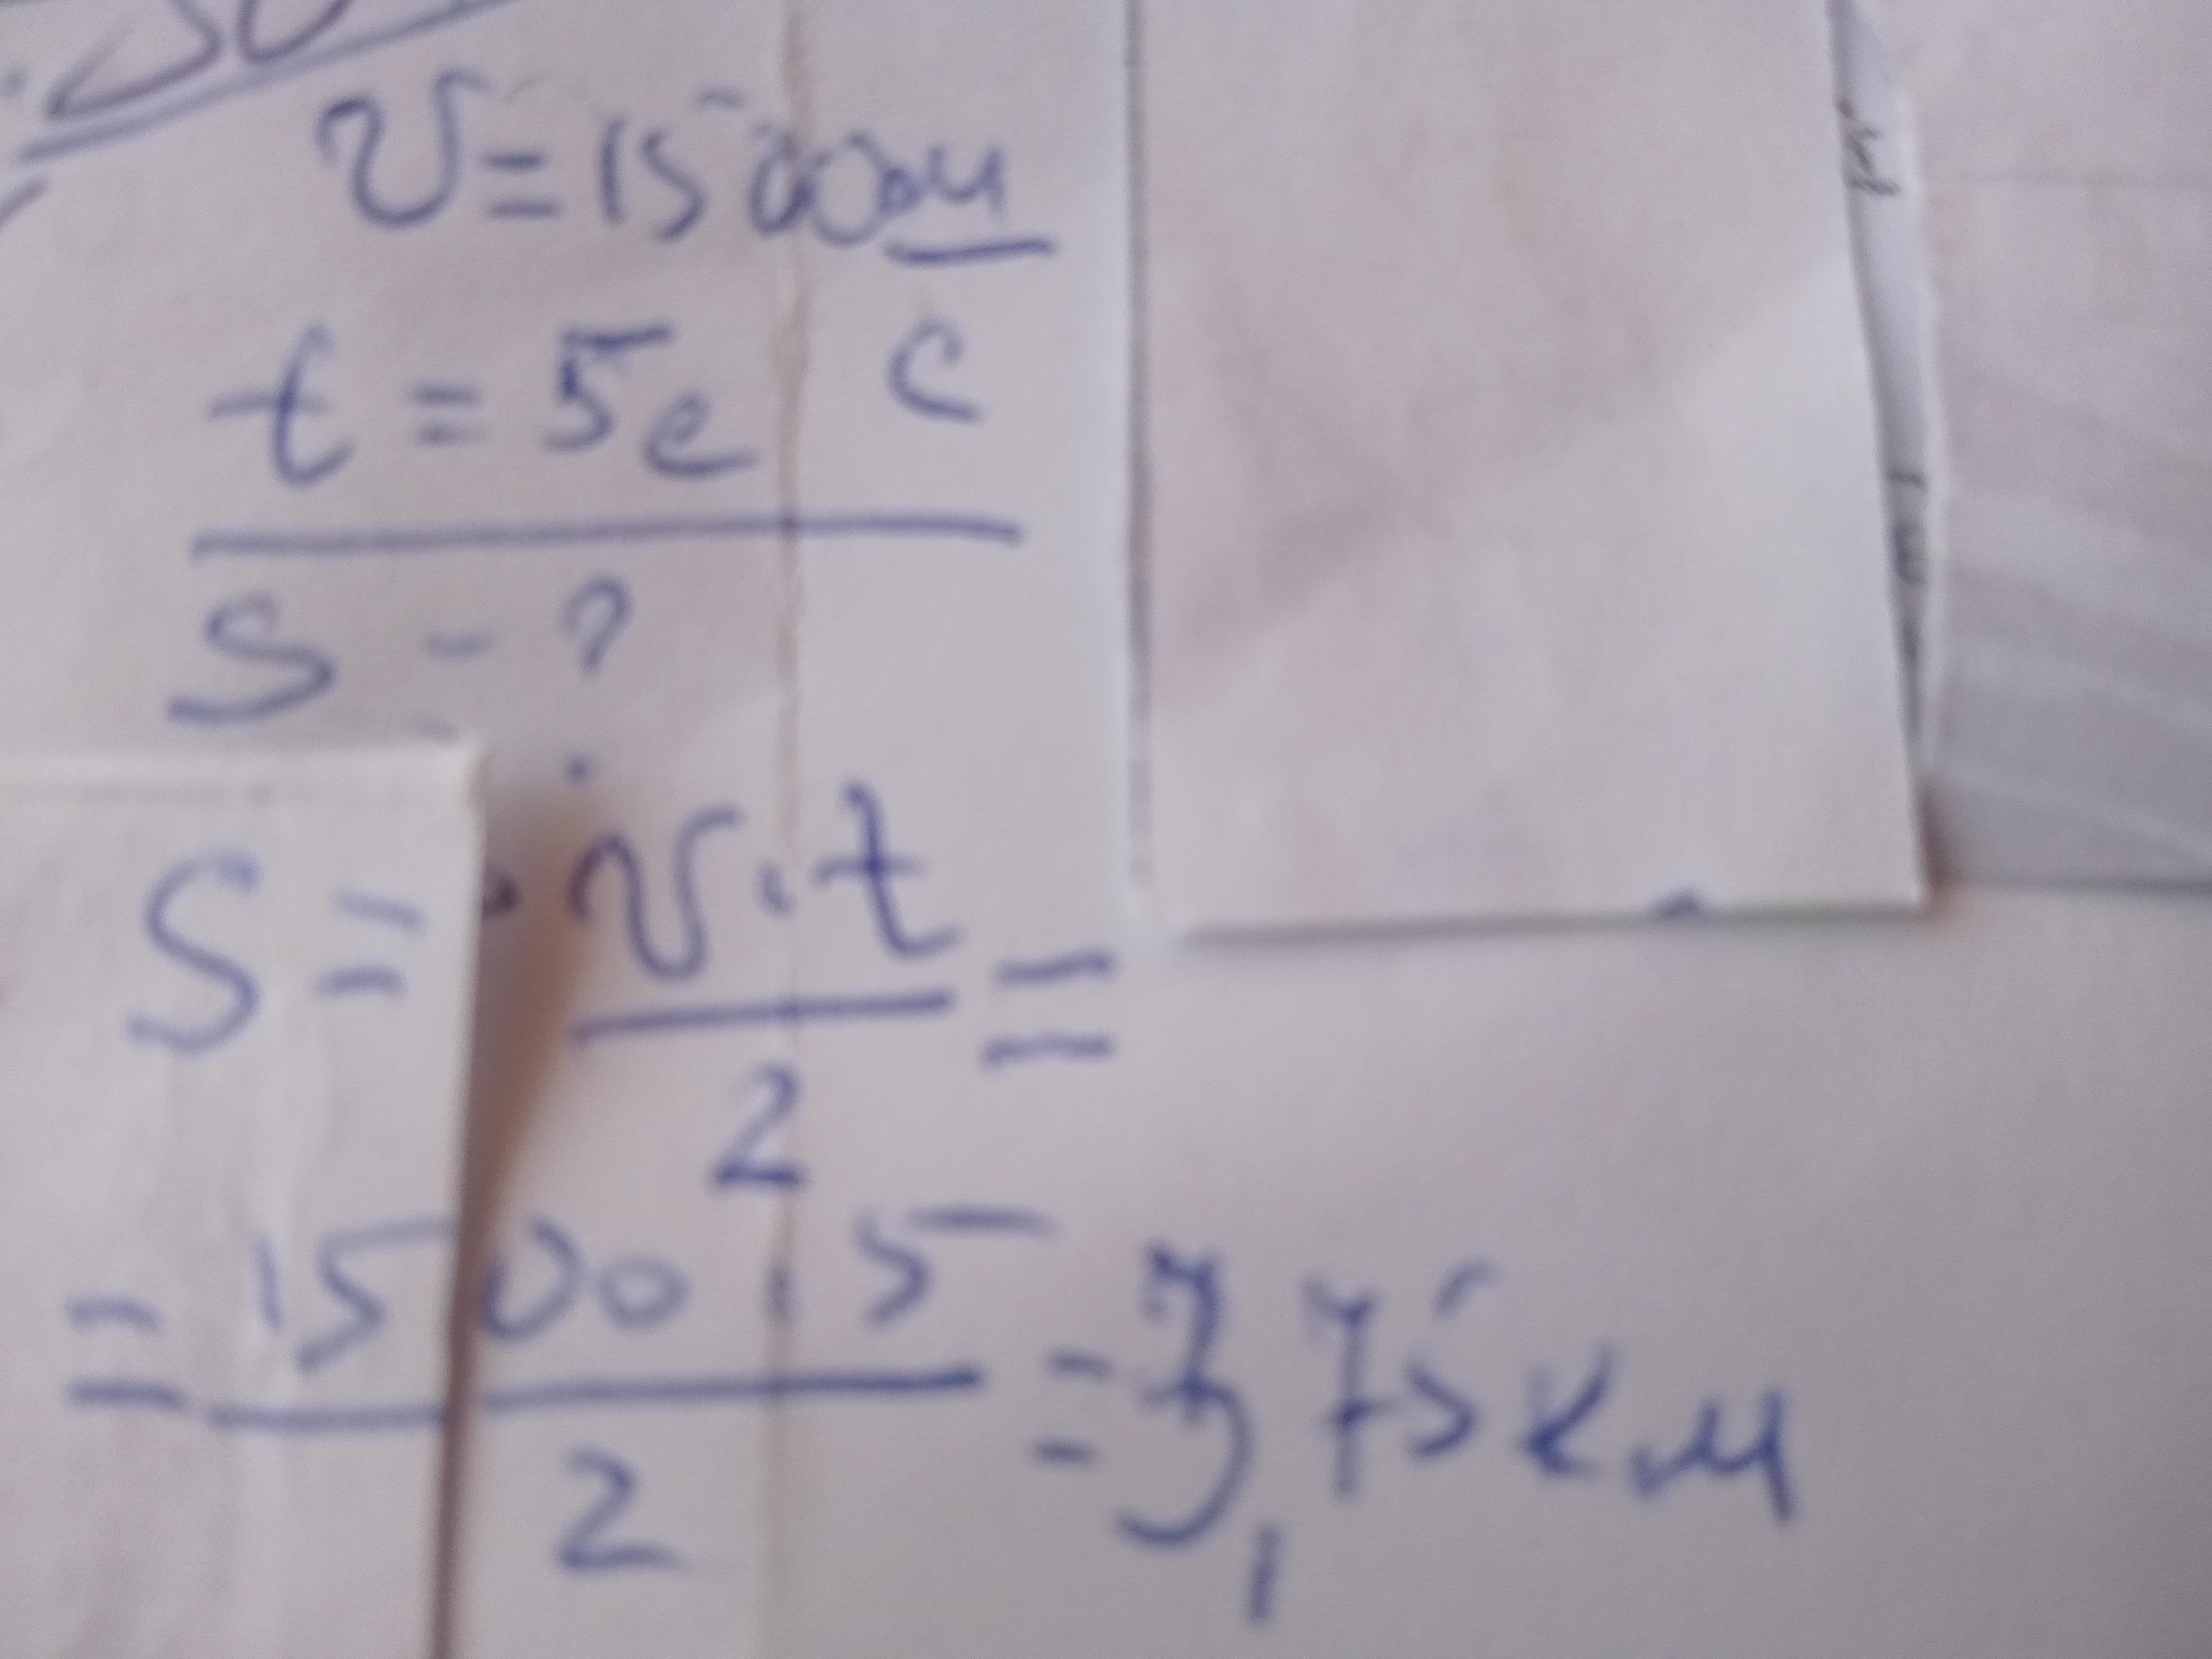 υ = 1500 м/с
t = 5с
S - ?
S = υ·t/2 =
= 1500·5/2 = 3,75 км